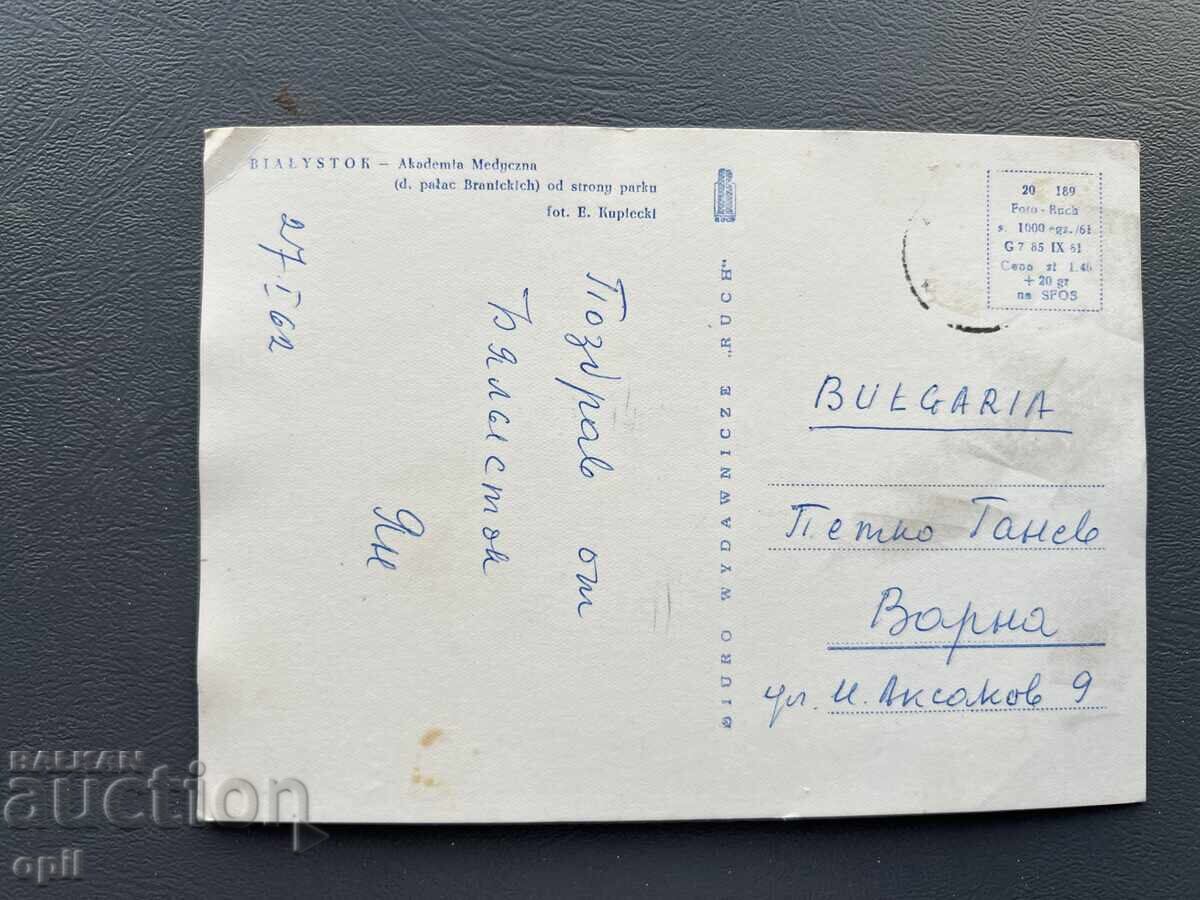 BIAŁYSTOK – Akademia Medyczna
(d. pałac Branickich) od strony parku
fot. E. Kupiecki
27 I 62
Поздрав от
Бялысток
Ян
BIURO WYDAWNICZE "RUCH"
20 189
Foto - Ruch
s. 1000 egz./61
G 7 85 IX 61
Cena zł 1.40
+ 20 gr
na SFOS
BUŁGARIA
Петко Ганев
Варна
ул. И. Аксаков 9
BALKAN
auction
opil